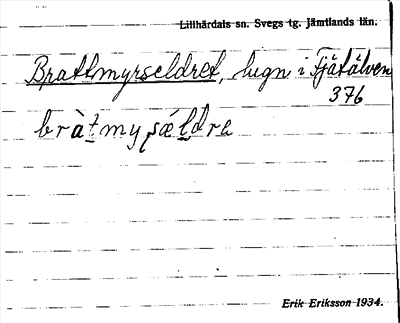 Lillhärdals sn. Svegs tg. Jämtlands län.
Brattmyrseldret, lugn i Fjätälven
376
bràt̲myṣǽl̲dre
Erik Eriksson 1934.